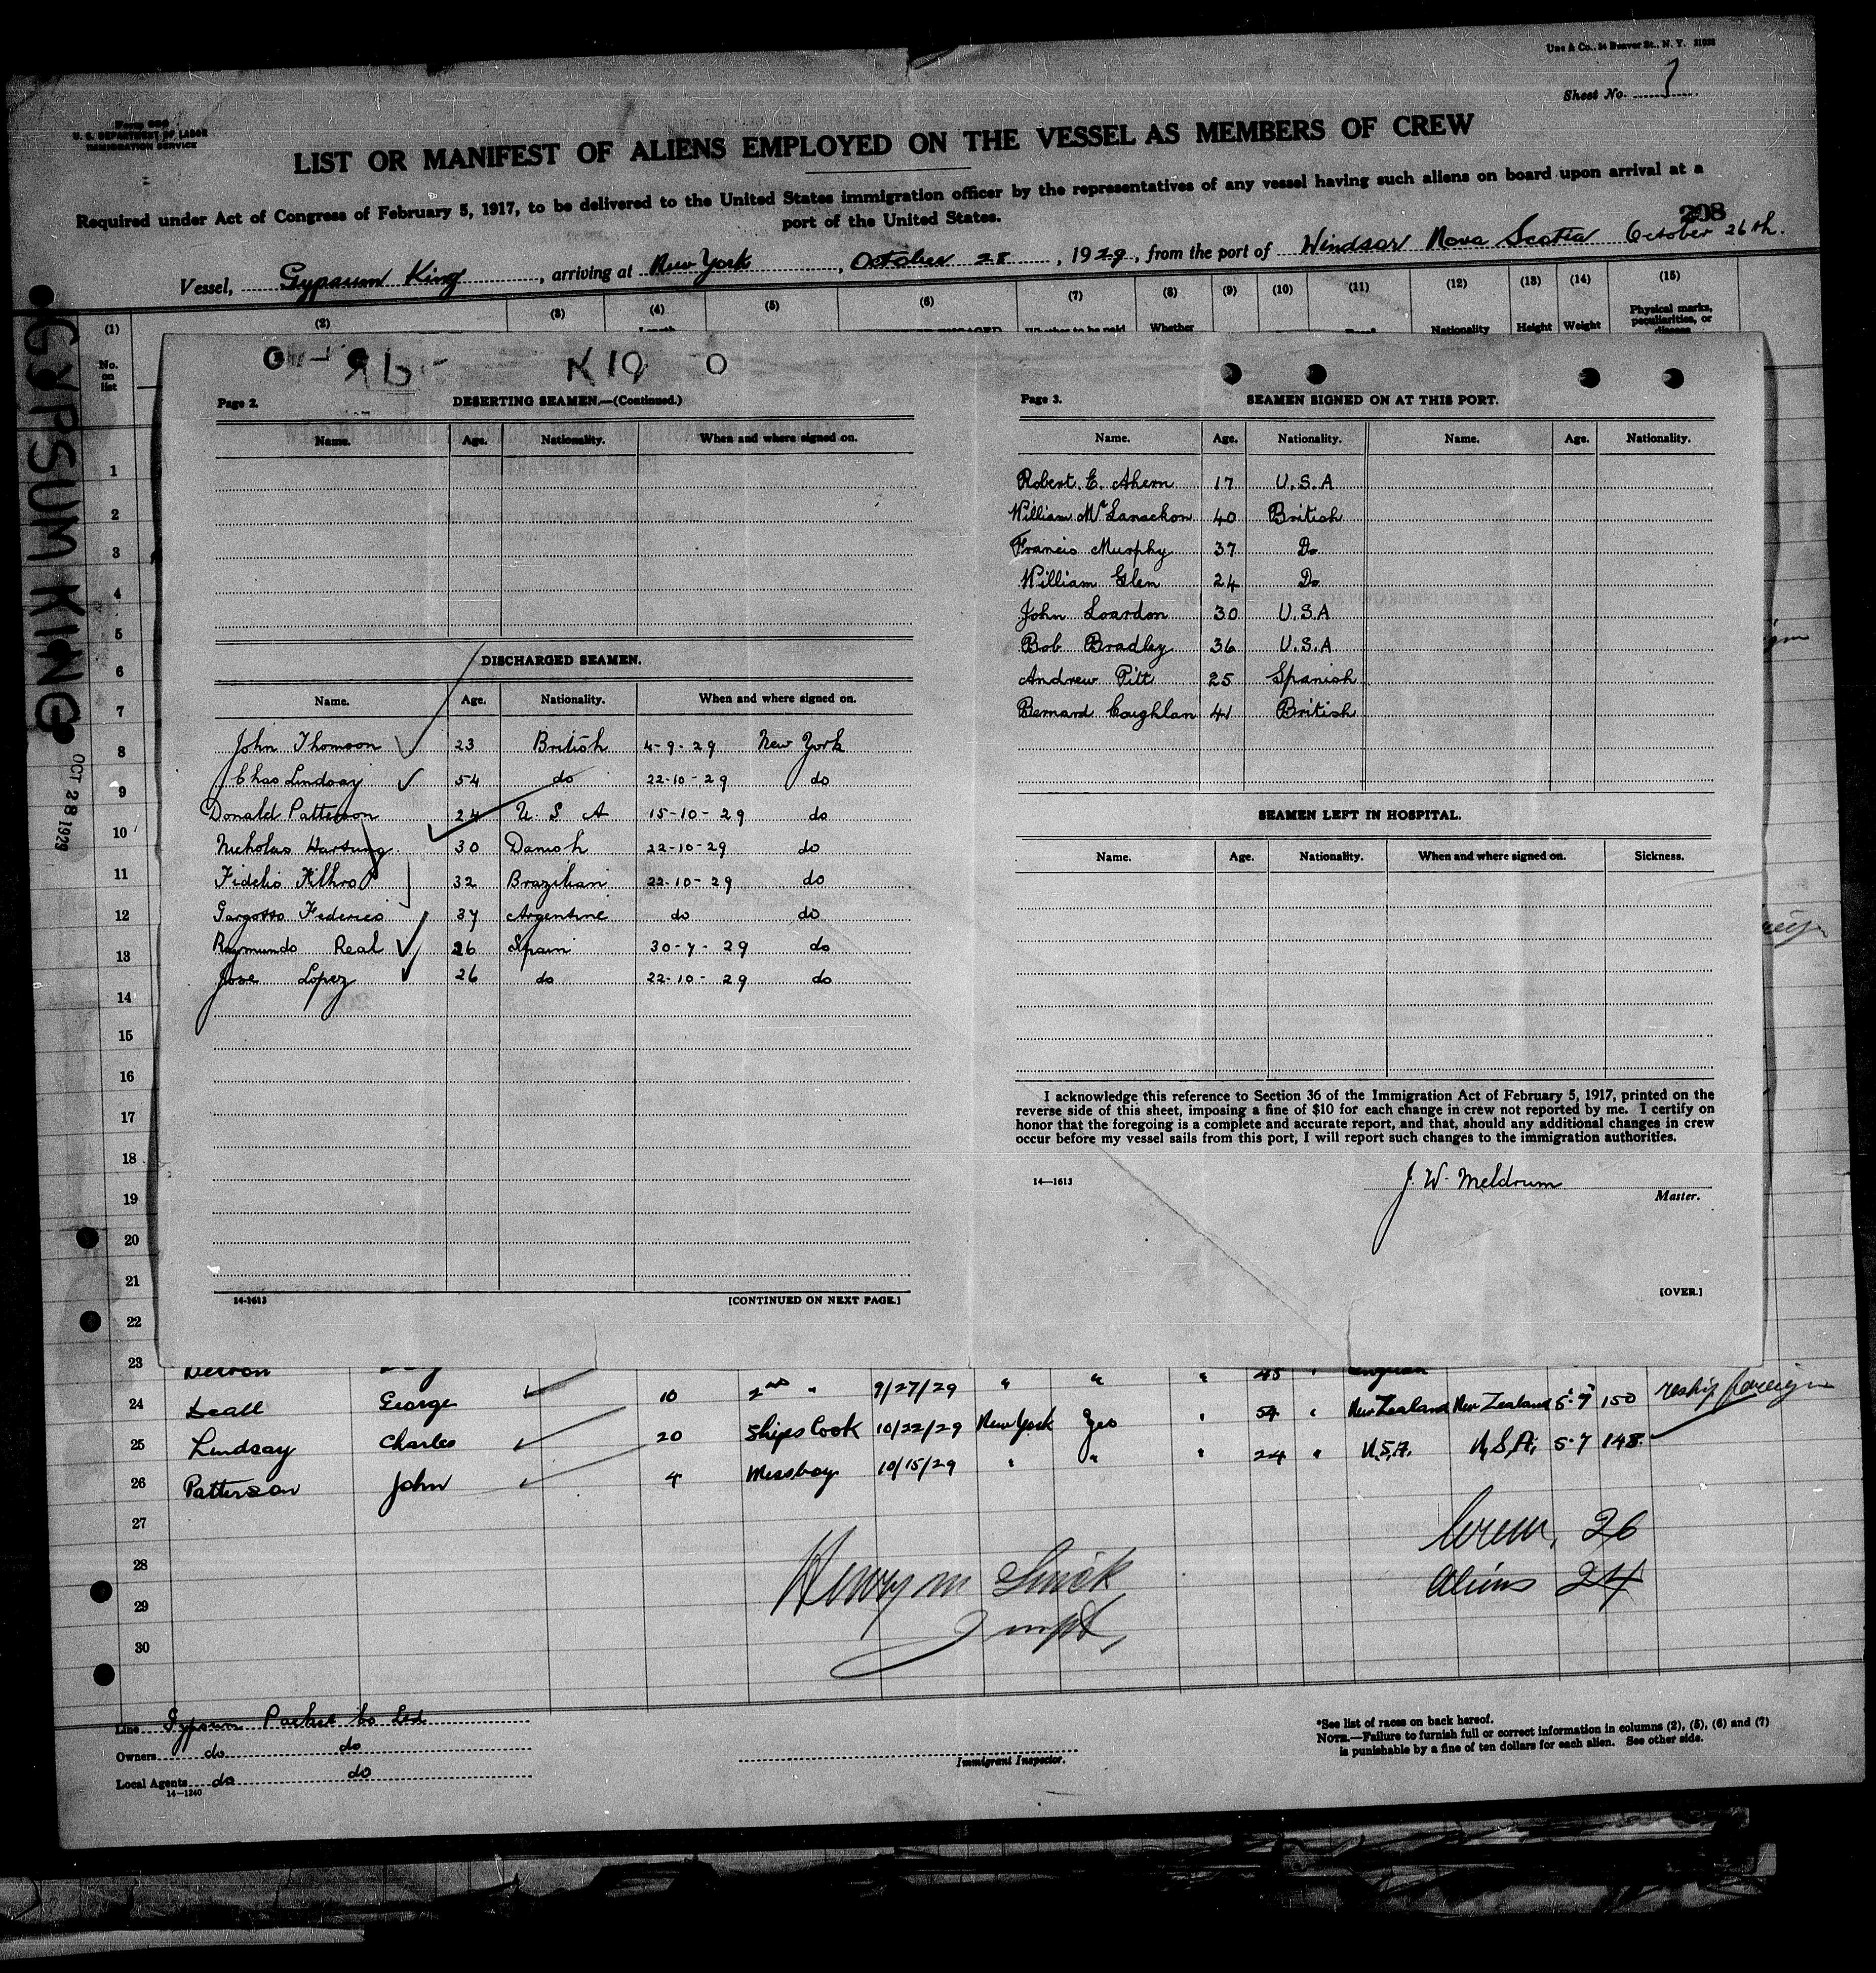 Une & Co., 34 Beaver St., N. Y.
Sheet No. 1
U. S. DEPARTMENT OF LABOR
IMMIGRATION SERVICE
LIST OR MANIFEST OF ALIENS EMPLOYED ON THE VESSEL AS MEMBERS OF CREW
Required under Act of Congress of February 5, 1917, to be delivered to the United States immigration officer by the representatives of any vessel having such aliens on board upon arrival at a
port of the United States.
208
Vessel, Gypsum King, arriving at New York, October 28, 1929, from the port of Windsor Nova Scotia October 26th.
(1) (2) (3) (4) (5) (6) (7) (8) (9) (10) (11) (12) (13) (14) (15)
No. on list
Whether to be paid Whether Nationality Height Weight Physical marks, peculiarities, or disease
GYPSUM KING
OCT 28 1929
K19
Page 2. DESERTING SEAMEN.—(Continued.)
Name. Age. Nationality. When and where signed on.
DISCHARGED SEAMEN.
Name. Age. Nationality. When and where signed on.
John Thomson 23 British 4-9-29 New York
Chas Lindsay 54 do 22-10-29 do
Donald Patterson 24 U. S A 15-10-29 do
Nicholas Hartung 30 Danish 22-10-29 do
Fidelio 32 Brazilian 22-10-29 do
Gargosso Federico 37 Argentine do do
Raymundo Real 26 Spain 30-7-29 do
Jose Lopez 26 do 22-10-29 do
14-1613 [CONTINUED ON NEXT PAGE.]
Page 3. SEAMEN SIGNED ON AT THIS PORT.
Name. Age. Nationality. Name. Age. Nationality.
Robert E. Ahern 17 U.S.A
William 40 British
Francis Murphy 37 Do
William Glen 24 Do
John Loardon 30 U.S.A
Bob Bradley 36 U.S.A
Andrew Pitt 25 Spanish
Bernard Coughlan 41 British
SEAMEN LEFT IN HOSPITAL.
Name. Age. Nationality. When and where signed on. Sickness.
I acknowledge this reference to Section 36 of the Immigration Act of February 5, 1917, printed on the
reverse side of this sheet, imposing a fine of $10 for each change in crew not reported by me. I certify on
honor that the foregoing is a complete and accurate report, and that, should any additional changes in crew
occur before my vessel sails from this port, I will report such changes to the immigration authorities.
14—1613 J. W. Meldrum
Master.
[OVER.]
1
2
3
4
5
6
7
8
9
10
11
12
13
14
15
16
17
18
19
20
21
22
23
24 George 10 2nd " 9/27/29 " " "
25 Lindsay Charles 20 Ships Cook 10/22/29 New York Yes " 54 " New Zealand New Zealand 5-7 150 reship foreign
26 Patterson John 4 Messboy 10/15/29 " " " 24 " U.S.A. U.S.A. 5-7 148
27
28
29
30
Crew, 26
Aliens 24
Line Gypsum Packet Co Ltd
Owners do do
Local Agents do do
14—1240
Immigrant Inspector.
*See list of races on back hereof.
NOTE.—Failure to furnish full or correct information in columns (2), (5), (6) and (7)
is punishable by a fine of ten dollars for each alien. See other side.